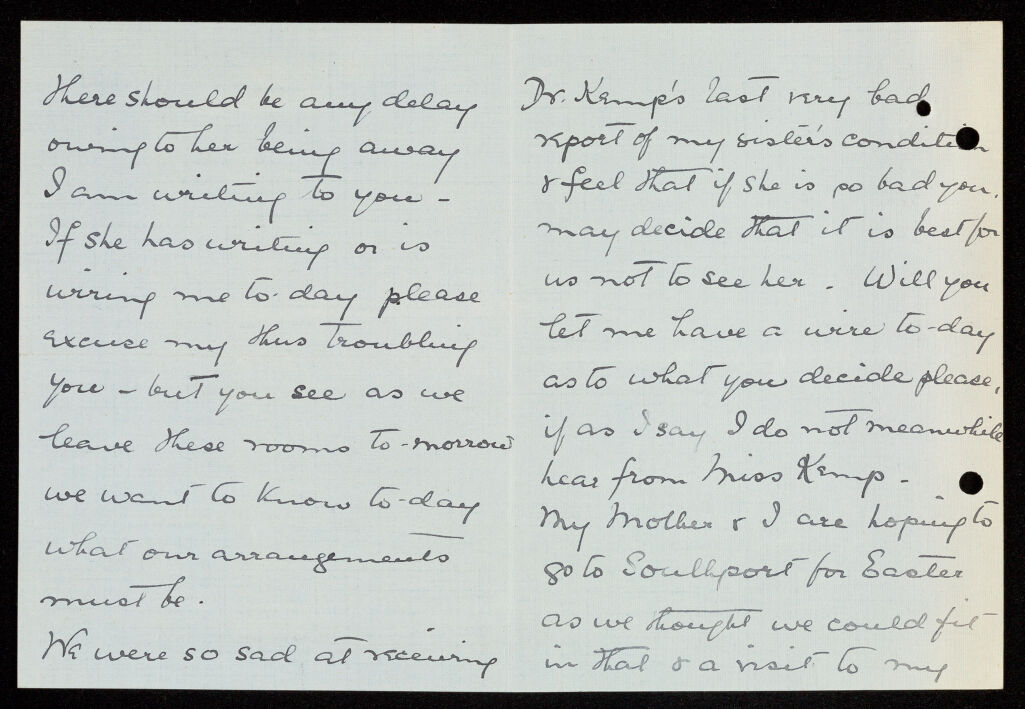 there should be any delay
owing to her being away
I am writing to you -
If she has writing or is
wiring me to-day please
excuse my thus troubling
you - but you see as we
leave these rooms to-morrow
we want to know to-day
what our arrangements
must be.
We were so sad at receiving
Dr. Kemp's last very bad
report of my sister's condition
& feel that if she is so bad you
may decide that it is best for
us not to see her. Will you
let me have a wire to-day
as to what you decide please,
if as I say I do not meanwhile
hear from Miss Kemp -
My Mother & I are hoping to
go to Southport for Easter
as we thought we could fit
in that & a visit to my